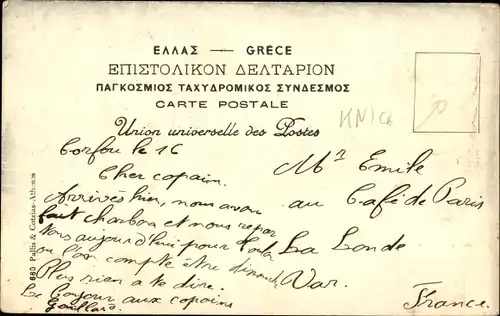 ΕΛΛΑΣ — GRÈCE
ΕΠΙΣΤΟΛΙΚΟΝ ΔΕΛΤΑΡΙΟΝ
ΠΑΓΚΟΣΜΙΟΣ ΤΑΧΥΔΡΟΜΙΚΟΣ ΣΥΝΔΕΣΜΟΣ
CARTE POSTALE
Union universelle des Postes
Corfou le 16
Cher copain.
Arrivés hier, nous avons
fait charbon et nous repar
tons aujourd'hui pour Toulon
ou l'on compte être dimanche
Plus rien a te dire.
Le Bonjour aux copains
Gaillard.
Mr Emile
au Café de Paris
La Londe
Var.
France.
660 Pallis & Cotzias-Athènes